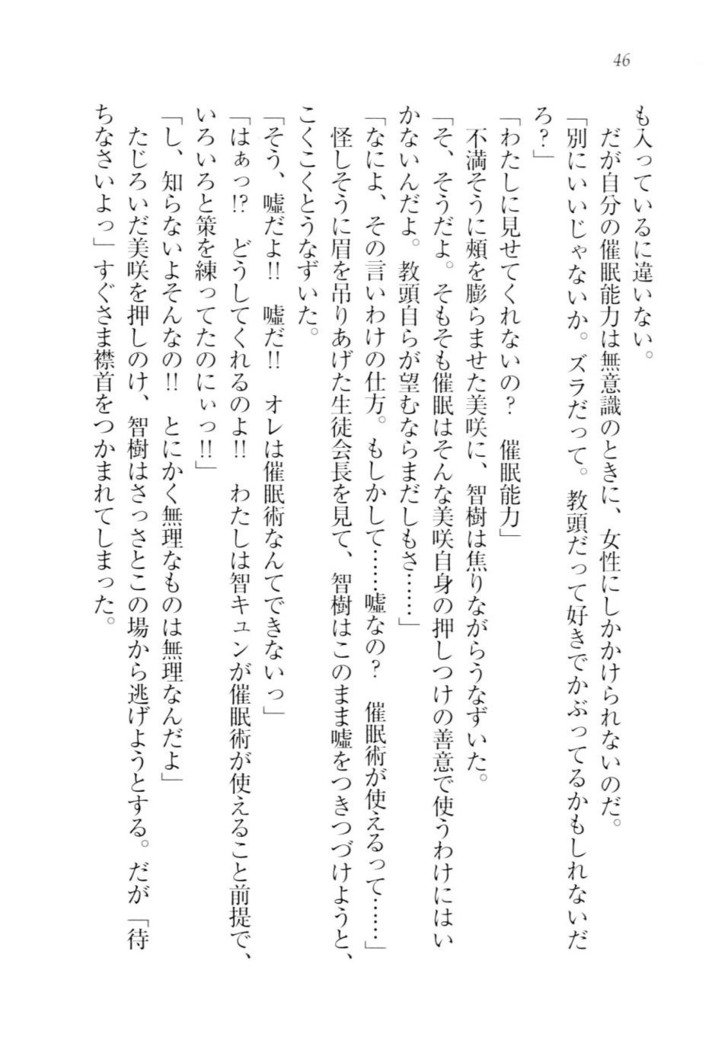 46
も入っているに違いない。
　だが自分の催眠能力は無意識のときに、女性にしかかけられないのだ。
「別にいいじゃないか。ズラだって。教頭だって好きでかぶってるかもしれないだ
ろ？」
「わたしに見せてくれないの？　催眠能力」
　不満そうに頬を膨らませた美咲に、智樹は焦りながらうなずいた。
「そ、そうだよ。そもそも催眠はそんな美咲自身の押しつけの善意で使うわけにはい
かないんだよ。教頭自らが望むならまだしもさ……」
「なによ、その言いわけの仕方。もしかして……嘘なの？　催眠術が使えるって……」
　怪しそうに眉を吊りあげた生徒会長を見て、智樹はこのまま嘘をつきつづけようと、
こくこくとうなずいた。
「そう、嘘だよ!!　嘘だ!!　オレは催眠術なんてできないっ」
「はぁっ!?　どうしてくれるのよ!!　わたしは智キュンが催眠術が使えること前提で、
いろいろと策を練ってたのにぃっ!!」
「し、知らないよそんなの!!　とにかく無理なものは無理なんだよ」
　たじろいだ美咲を押しのけ、智樹はさっさとこの場から逃げようとする。だが「待
ちなさいよっ」すぐさま襟首をつかまれてしまった。